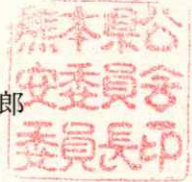 熊本県公
安委員会
郎
委員長印